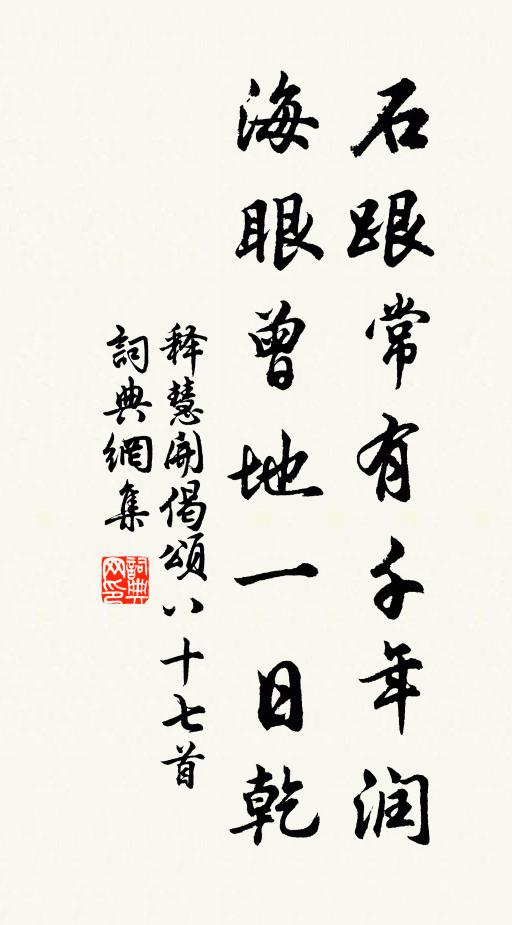 石跟常有千年润
海眼曾地一日乾
释慧開偈頌八十七首
詞典網集
詞典网印